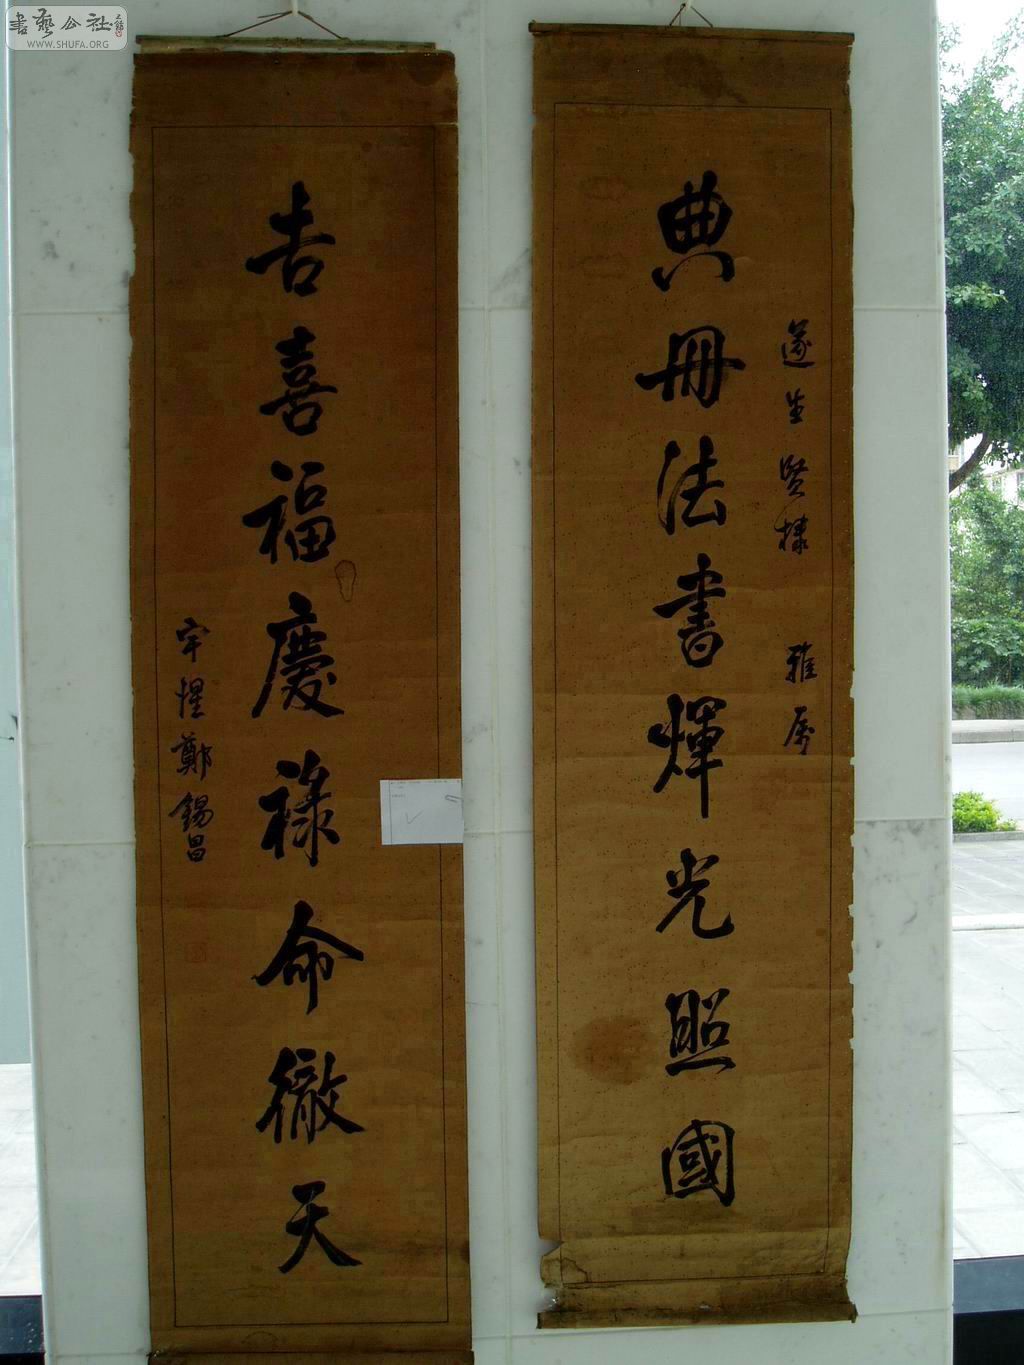 書藝公社
WWW.SHUFA.ORG
典冊法書煇光照國
遂生賢棣 雅屬
吉喜福慶祿命徹天
鄭錫昌